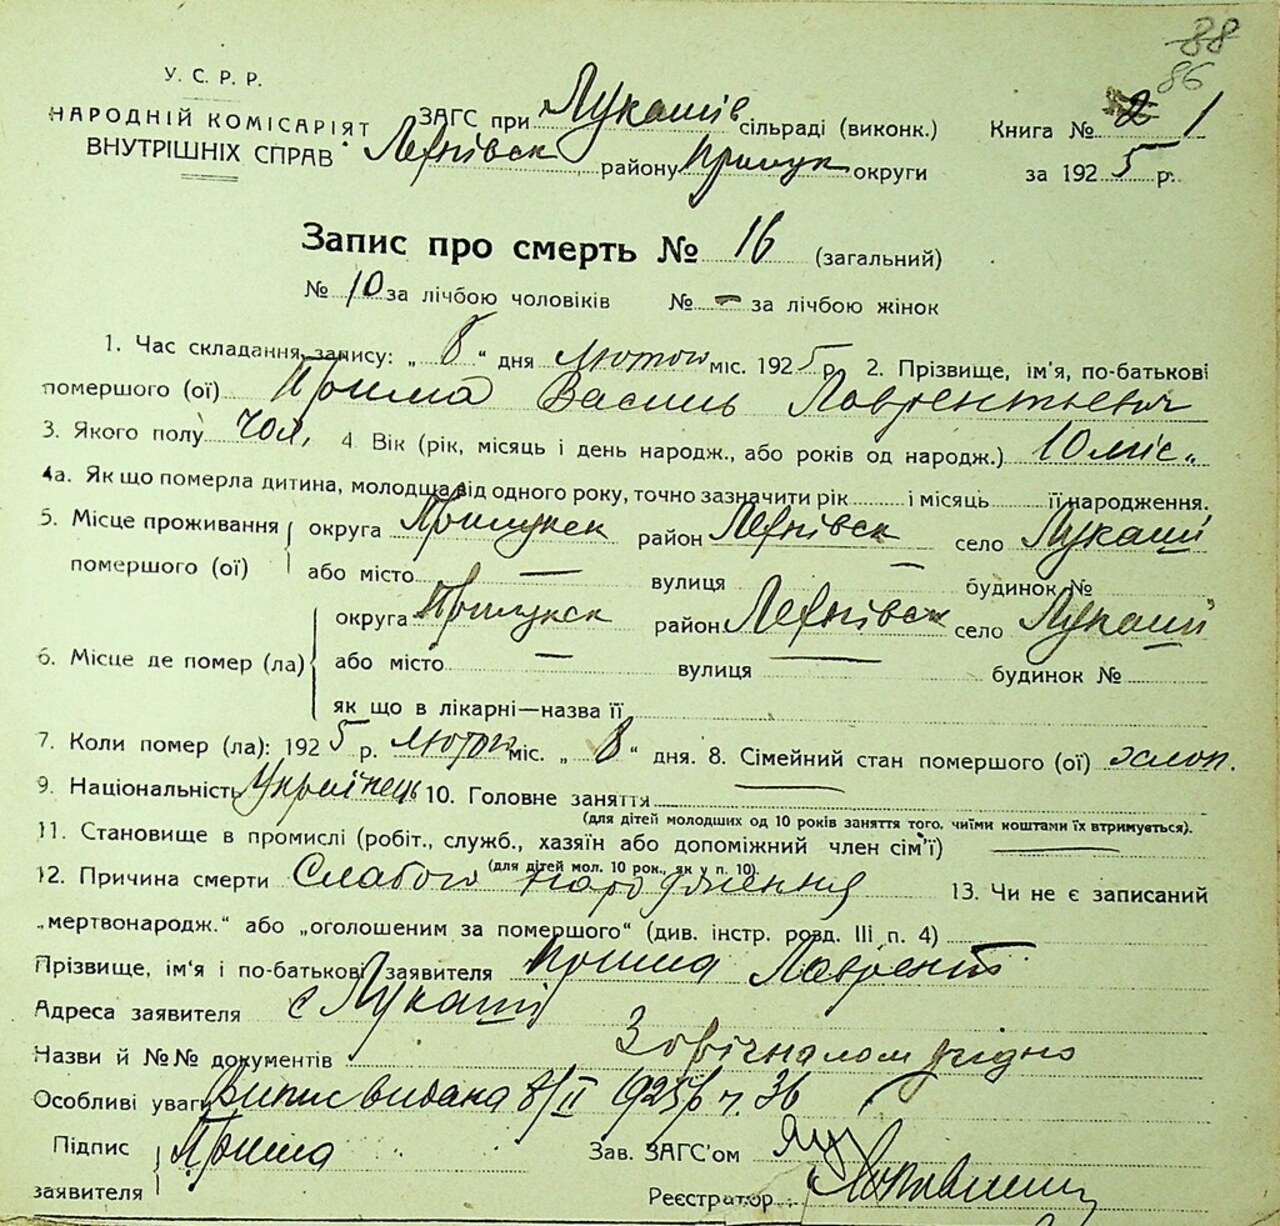 88
86
У. С. Р. Р.
НАРОДНІЙ КОМІСАРІЯТ
ВНУТРІШНІХ СПРАВ
ЗАГС при Лукашів сільраді (виконк.)
районну Прилук округи
Книга № 2 1
за 1925 р.
Запис про смерть № 16 (загальний)
№ 10 за лічбою чоловіків № - за лічбою жінок
1. Час складання запису: „ 8 “ дня Лютого міс. 1925 р. 2. Прізвище, ім'я, по-батькові
помершого (ої) Прима Василь Лаврентьевич
3. Якого полу чол, 4 Вік (рік, місяць і день народж., або років од народж.) 10 міс.
4а. Як що померла дитина, молодща від одного року, точно зазначити рік і місяць її народження.
5. Місце проживання помершого (ої) округа Прилукск район село Лукаші
або місто — вулиця — будинок №
6. Місце де помер (ла) округа Прилукск район село Лукаші
або місто — вулиця — будинок №
як що в лікарні—назва її
7. Коли помер (ла): 1925 р. Лютого міс. „ 8 “ дня. 8. Сімейний стан помершого (ої) хлоп.
9. Національність Українець 10. Головне заняття —
(для дітей молодших од 10 років заняття того, чиїми коштами їх втримується).
11. Становище в промислі (робіт., служб., хазяїн або допоміжний член сім'ї) —
(для дітей мол. 10 рок., як у п. 10).
12. Причина смерти Слабого народження 13. Чи не є записаний
„мертвонародж.“ або „оголошеним за помершого“ (див. інстр. розд. III п. 4)
Прізвище, ім'я і по-батькові заявителя Прима Лаврент
Адреса заявителя с Лукаші
Назви й №№ документів З орігналом згідно
Особливі уваги Випис видана 8/II 1925 р ч. 36
Підпис заявителя Прима
Зав. ЗАГС'ом
Реєстратор